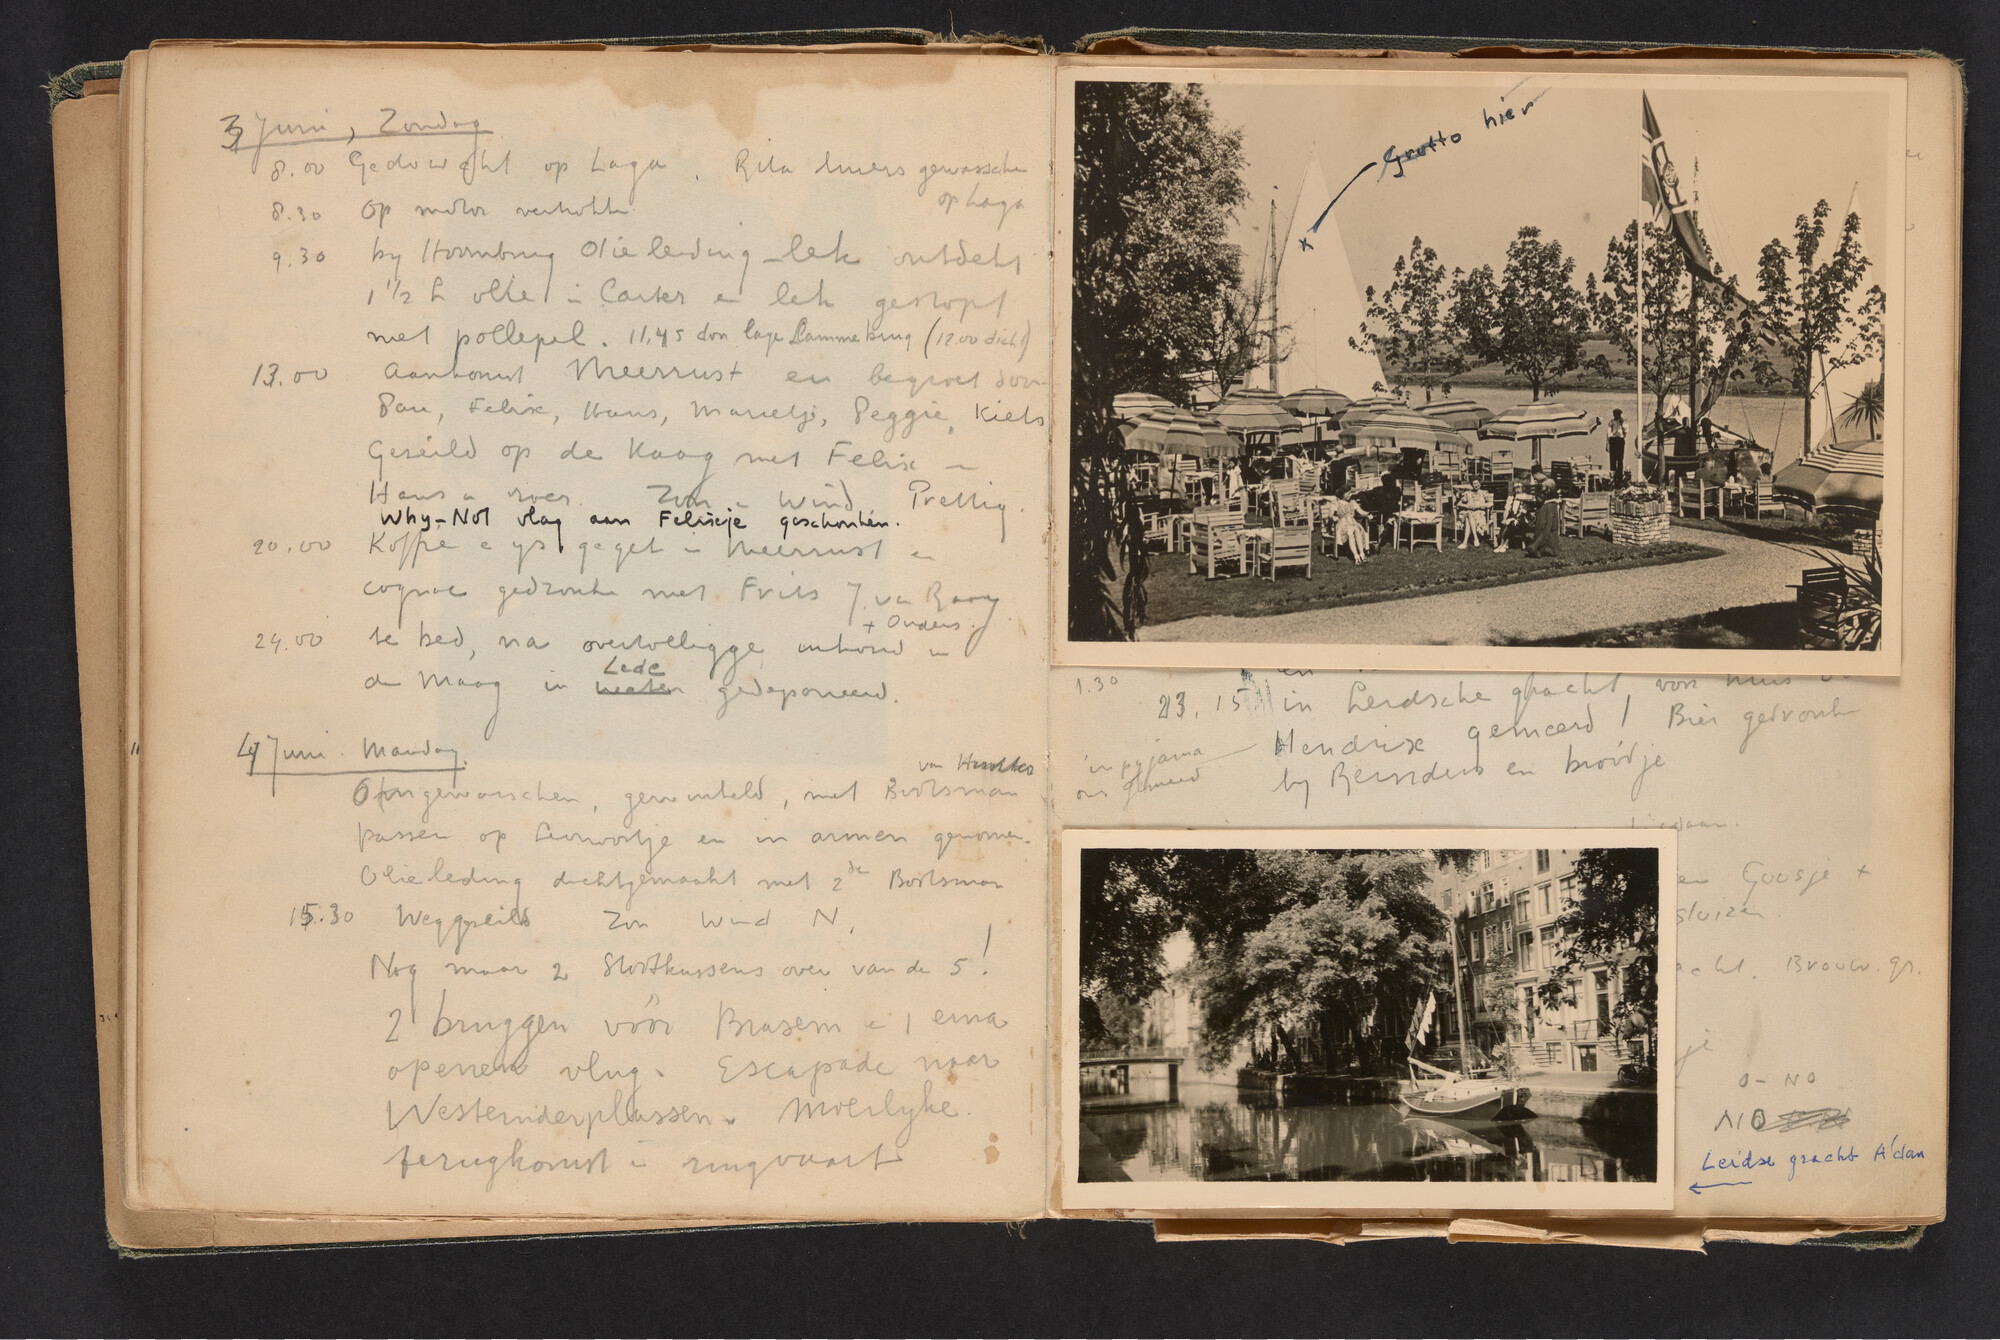 3 Juni, Zondag
8.00 Gedouwcht op Laga. Rita luiers gewasschen
op Laga
8.30 Op motor verhotte
9.30 by Hoornbrug Olieleiding-lek ontdekt
1 1/2 L olie in Carter en lek gestopt
met pollepel. 11,45 don lage Lammebrug (12.00 dicht)
13.00 Aankomst Meerrust en begroet door
Pau, Felix, Hans, Marietje, Peggie, Kiels
Gezeild op de Kaag met Felix en
Hans a roer. Zon en Wind Prettig.
Why-Not vlag aan Felixje geschonken.
20.00 Koffie en ys geget in Meerrust en
cognac gedronken met Frits J. van Rooy
+ Ouders.
24.00 te bed, na overtollige inhoud in
de Maag in Lede gedeponeerd.
4 Juni Mandag.
Ofangewasschen, gewinteld, met Bootsman
passen op en in armen genomen.
Olieleding dichtgemaakt met 2de Bootsman
15.30 Weggezeild Zon Wind N.
Nog maar 2 Slootkussens over van de 5!
2 bruggen vóór Brasem en 1 erna
openen vlug. Escapade naar
Westeinderplassen. Moeilyke
terugkomst in ringvaart
Grotto hier
1.30
23.15 in Leidsche gracht, voor huis
Hendrix gemeerd! Bier gedronken
in pyjama
gemeerd
by Reinders en broodje
en Guusje +
sluizen.
Brouw. gr.
je
O-NO
NO
Leidse gracht A'dam